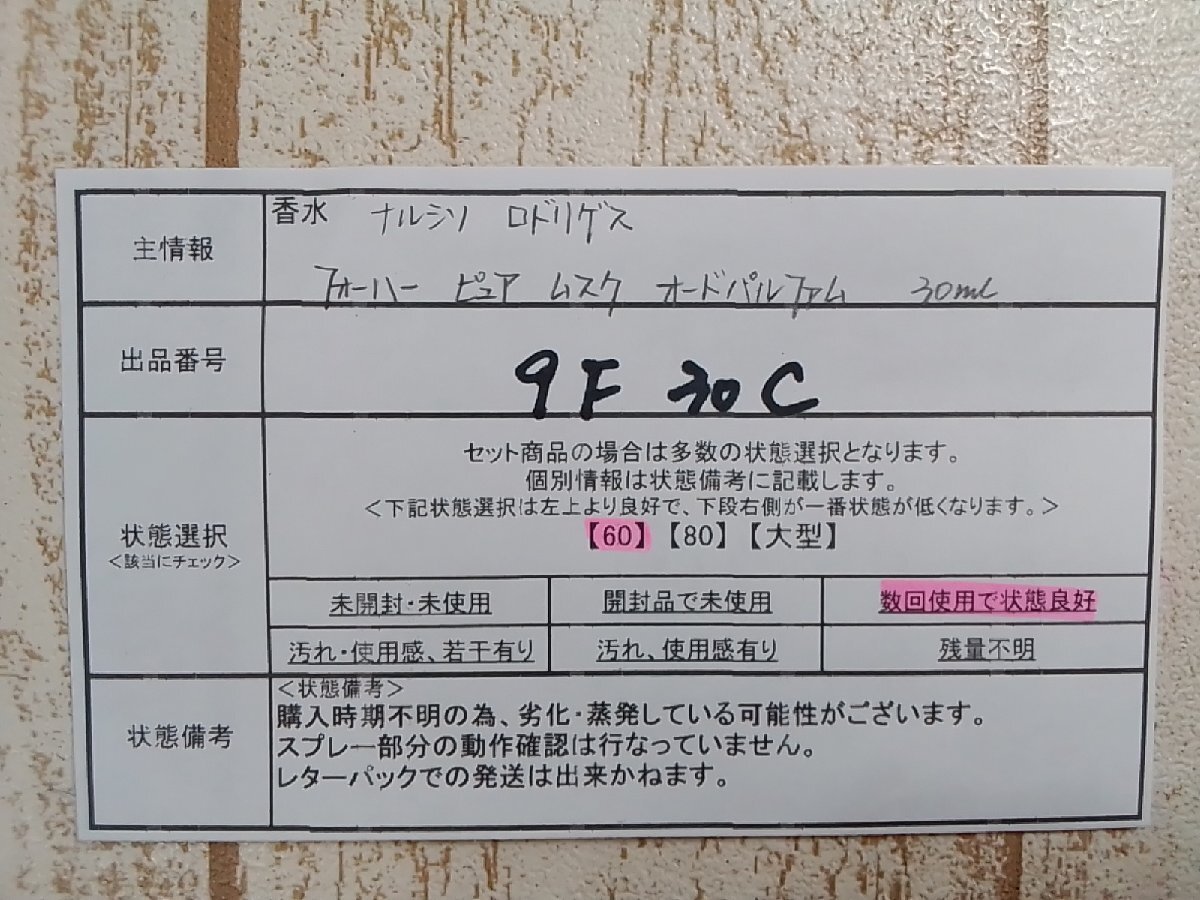 主情報
香水 ナルシソ ロドリゲス
フォーハー ピュア ムスク オードパルファム 30ml
出品番号
9F 30C
状態選択
<該当にチェック>
セット商品の場合は多数の状態選択となります。
個別情報は状態備考に記載します。
<下記状態選択は左上より良好で、下段右側が一番状態が低くなります。>
【60】【80】【大型】
未開封・未使用 開封品で未使用 数回使用で状態良好
汚れ・使用感、若干有り 汚れ、使用感有り 残量不明
状態備考
<状態備考>
購入時期不明の為、劣化・蒸発している可能性がございます。
スプレー部分の動作確認は行なっていません。
レターパックでの発送は出来かねます。